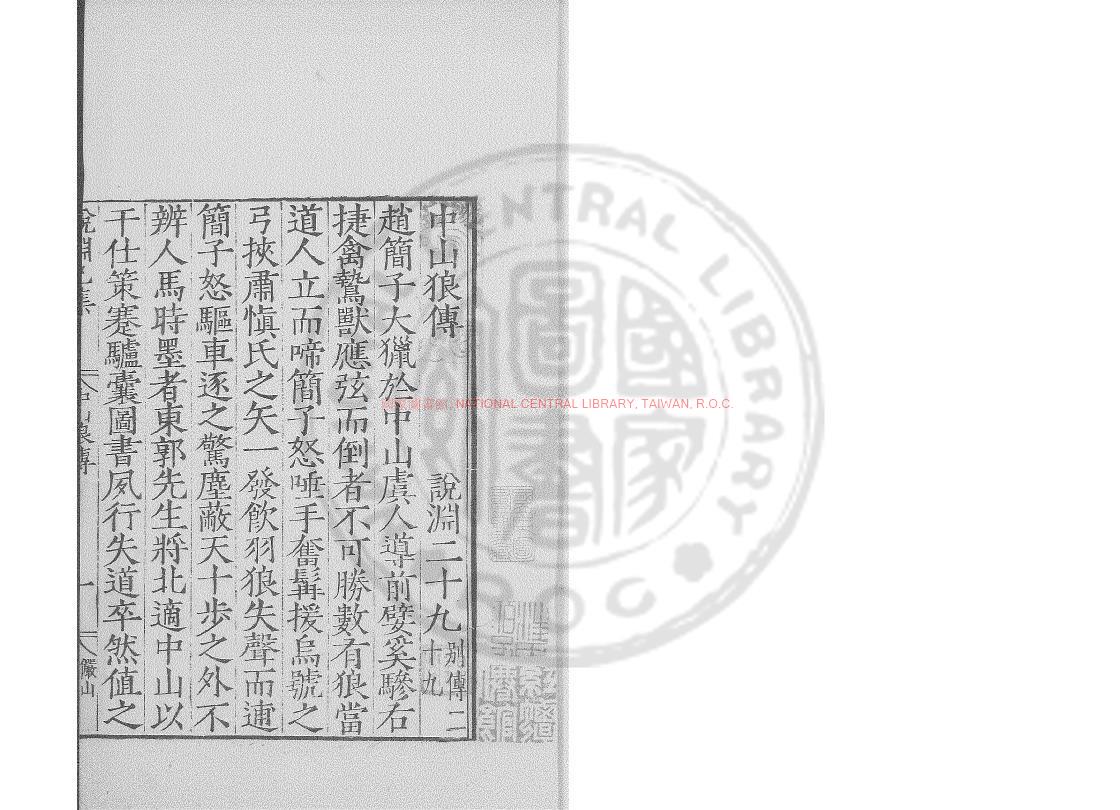 中山狼傳 說淵二十九 別傳二十九
趙簡子大獵於中山虞人導前嬖奚驂右
捷禽鷙獸應弦而倒者不可勝數有狼當
道人立而啼簡子怒唾手奮髯援烏號之
弓挾肅愼氏之矢一發飮羽狼失聲而逋
簡子怒驅車逐之驚塵蔽天十步之外不
辨人馬時墨者東郭先生將北適中山以
干仕策蹇驢囊圖書夙行失道卒然値之
中山狼傳 一 儼山
國家圖書館
NATIONAL CENTRAL LIBRARY, TAIWAN, R.O.C.
CENTRAL LIBRARY
R O C
國家圖書